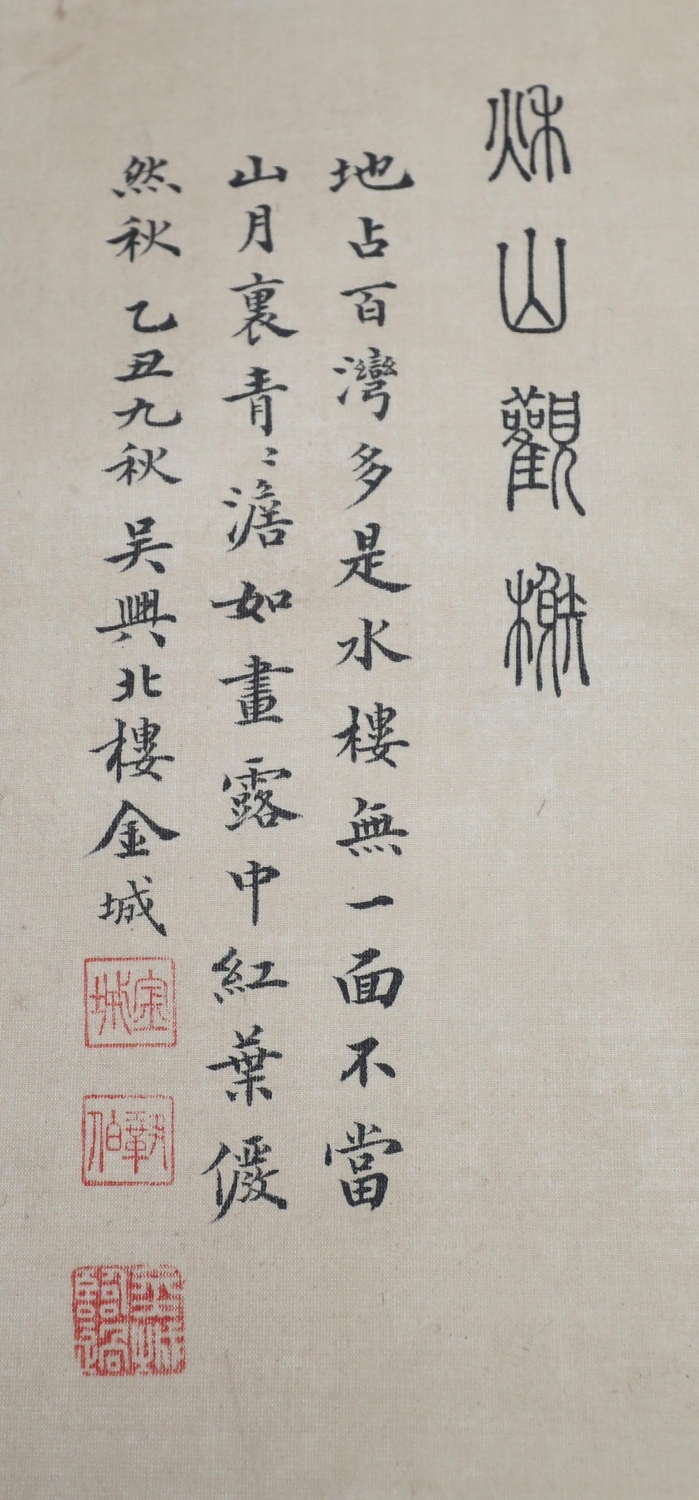 秌山觀榭
地占百灣多是水樓無一面不當
山月裏青〻澹如畫露中紅葉
然秋 乙丑九秋 吴興北樓金城
金城
鞏伯